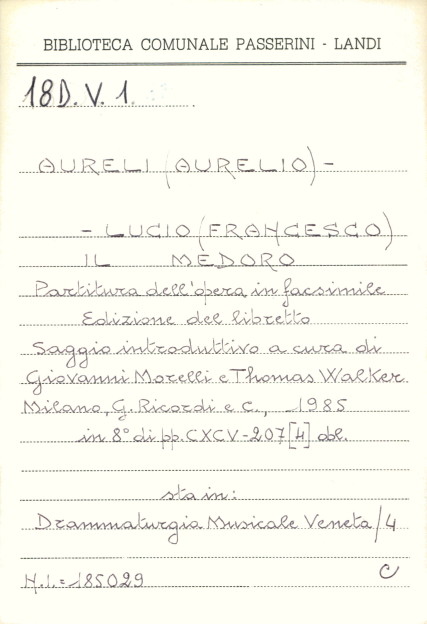 BIBLIOTECA COMUNALE PASSERINI - LANDI
18D. V. 1.
AURELI (AURELIO) -
- LUCIO (FRANCESCO)
IL MEDORO
Partitura dell'opera in facsimile
Edizione del libretto
Saggio introduttivo a cura di
Giovanni Morelli e Thomas Walker
Milano, G. Ricordi e C., 1985
in 8° di pp. CXCV-207 [4] obl.
sta in:
Drammaturgia Musicale Veneta/4
N.I. = 185029
C